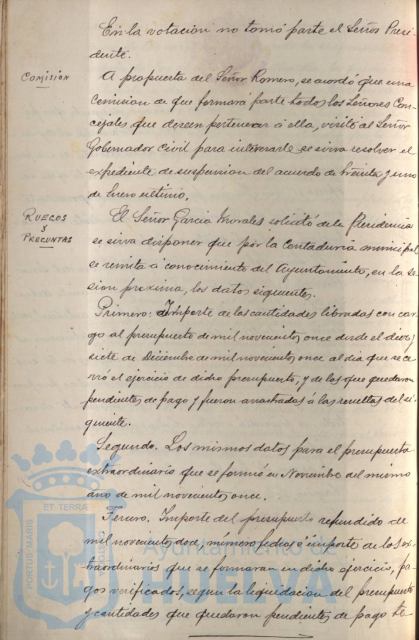 En la votación no tomó parte el Señor Presi
dente.
COMISIÓN
A propuesta del Señor Romero, se acordó que una
Comision de que formará parte todos los Señores Con-
cejales que deseen pertenecer á ella, visite al Señor
Gobernador Civil para interesarle se sirva resolver el
expediente de suspension del acuerdo de treinta y uno
de Enero último.
RUEGOS
y
PREGUNTAS
El Señor Garcia Morales solicitó de la Presidencia
se sirva disponer que por la Contaduría municipal
se remita á conocimiento del Ayuntamiento, en la se
sion proxima, los datos siguientes.
Primero: Importe de las cantidades libradas con car-
go al presupuesto de mil novecientos once desde el diez y
siete de Diciembre de mil novecientos once al dia que se ce-
rró el ejercicio de dicho presupuesto, y de los que quedaron
pendientes de pago y fueron arrastrados á las resultas del si
guiente.
Segundo. Los mismos datos para el presupuesto
extraordinario que se formó en Noviembre del mismo
año de mil novecientos once.
Tercero. Importe del presupuesto refundido de
mil novecientos doce, número, fechas é importe de los ex-
traordinarios que se formaran en dicho ejercicio, pa-
gos verificados, segun la liquidacion del presupuesto
y cantidades que quedaron pendientes de pago
PORTUS MARIS
ET TERRA
Ayuntamiento de
HUELVA